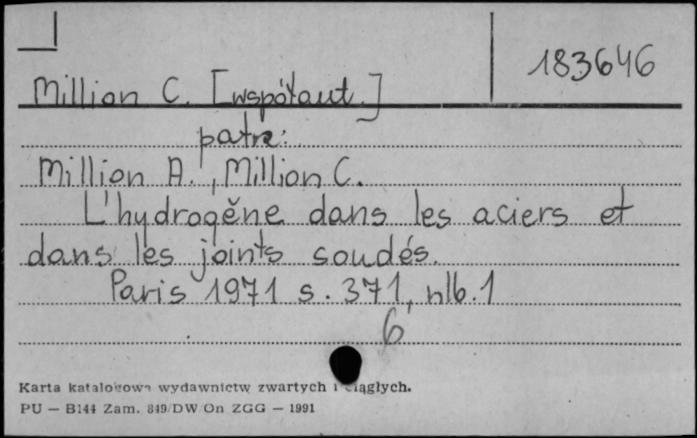 183646
Million C. [współaut.]
patrz:
Million A., Million C.
L'hydrogěne dans les aciers et
dans les joints soudés.
Paris 1971 s. 371, nlb. 1
6
Karta katalogowa wydawnictw zwartych i ciągłych.
PU — B144 Zam. 849/DW/On ZGG — 1991